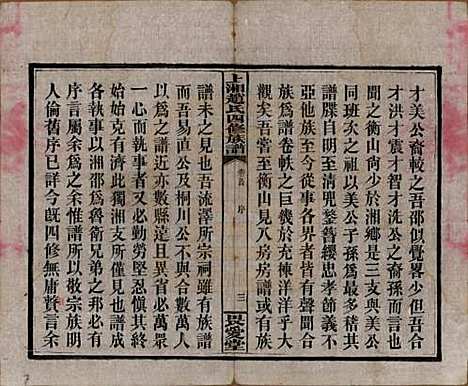 才美公裔較之吾邵似覺畧少但吾合
才洪才震才智才洗公之裔孫
之衡山尙少於湘鄉是三支與美公
同班次之祖以美公子孫爲最多其
譜牒自明至清兜鍪簪纓忠孝節義不
亞他族至今從事各界者皆有聲聞合
族爲譜卷軼之巨幾於充棟洋洋乎大
觀矣吾堂衡山有八房房譜
上湘趙氏四修族譜
卷首
序
三
譜未之見也吾流澤所宗祠雖有族譜
而吾易直公及桐川公不與合數萬人
以爲之譜近亦數縣遠且異省必萬眾
一心而執事者又必勤勞堅忍愼其終
始始克有濟此獨湘支所僅見也譜成
各執事以湘邵爲魯衛兄弟之邦而弁
序言屬余爲之余惟譜所以敬宗族明
人倫舊序已詳今旣四修無庸贅言余